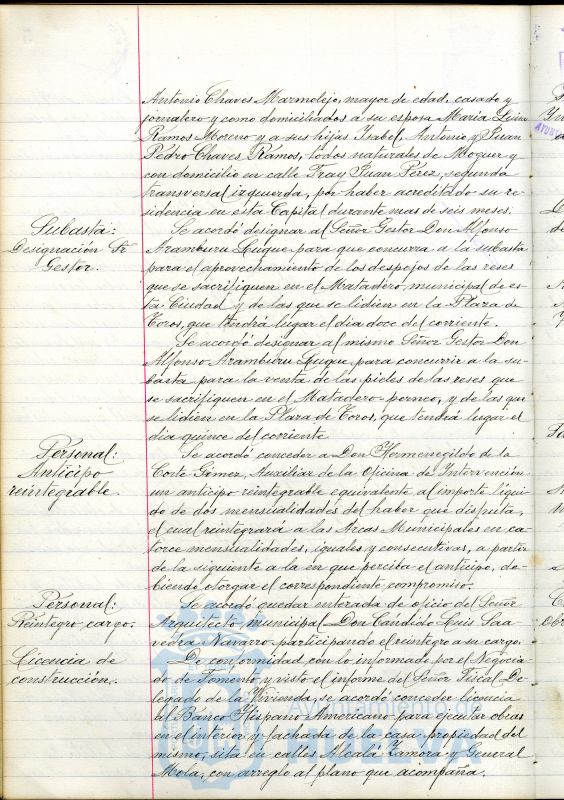 Antonio Chaves Marmolejo, mayor de edad, casado y
jornalero y como domiciliados a su esposa Maria
Ramos Moreno y a sus hijas Isabel, Antonio y Juan
Pedro Chaves Ramos, todos naturales de Moguer y
con domicilio en calle Fray Juan Pérez, segunda
transversal izquierda, por haber acreditado su re-
sidencia en esta Capital durante mas de seis meses.
Subasta:
Designación de
Gestor.
Se acordó designar al Señor Gestor Don Alfonso
Aramburu Luque para que concurra a la subasta
para el aprovechamiento de los despojos de las reses
que se sacrifiquen en el Matadero municipal de es-
ta Ciudad y de las que se lidien en la Plaza de
Toros, que tendrá lugar el dia doce del corriente.
Se acordó designar al mismo Señor Gestor Don
Alfonso Aramburu Luque, para concurrir a la su-
basta para la venta de las pieles de las reses que
se sacrifiquen en el Matadero y de las que
se lidien en la Plaza de Toros, que tendrá lugar el
dia quince del corriente
Personal:
Anticipo
reintegrable.
Se acordó conceder a Don Hermenegildo de la
Corte Gómez, Auxiliar de la Oficina de Intervención
un anticipo reintegrable equivalente al importe líqui-
do de dos mensualidades del haber que disfruta,
el cual reintegrará a las Arcas Municipales en ca-
torce mensualidades, iguales y consecutivas, a partir
de la siguiente a la en que perciba el anticipo, de-
biendo otorgar el correspondiente compromiso.
Personal:
Reintegro cargo.
Se acordó quedar enterada de oficio del Señor
Arquitecto municipal Don Candido Luis Saa-
vedra Navarro participando el reintegro a su cargo.
Licencia de
construcción.
De conformidad con lo informado por el Negocia-
do de Fomento y visto el informe del Señor Fiscal De-
legado de la Vivienda, se acordó conceder licencia
al Banco Hispano Americano para ejecutar obras
en el interior y fachada de la casa propiedad del
mismo, sita en calles Alcalá Zamora y General
Mola, con arreglo al plano que acompaña.
Ayuntamiento de